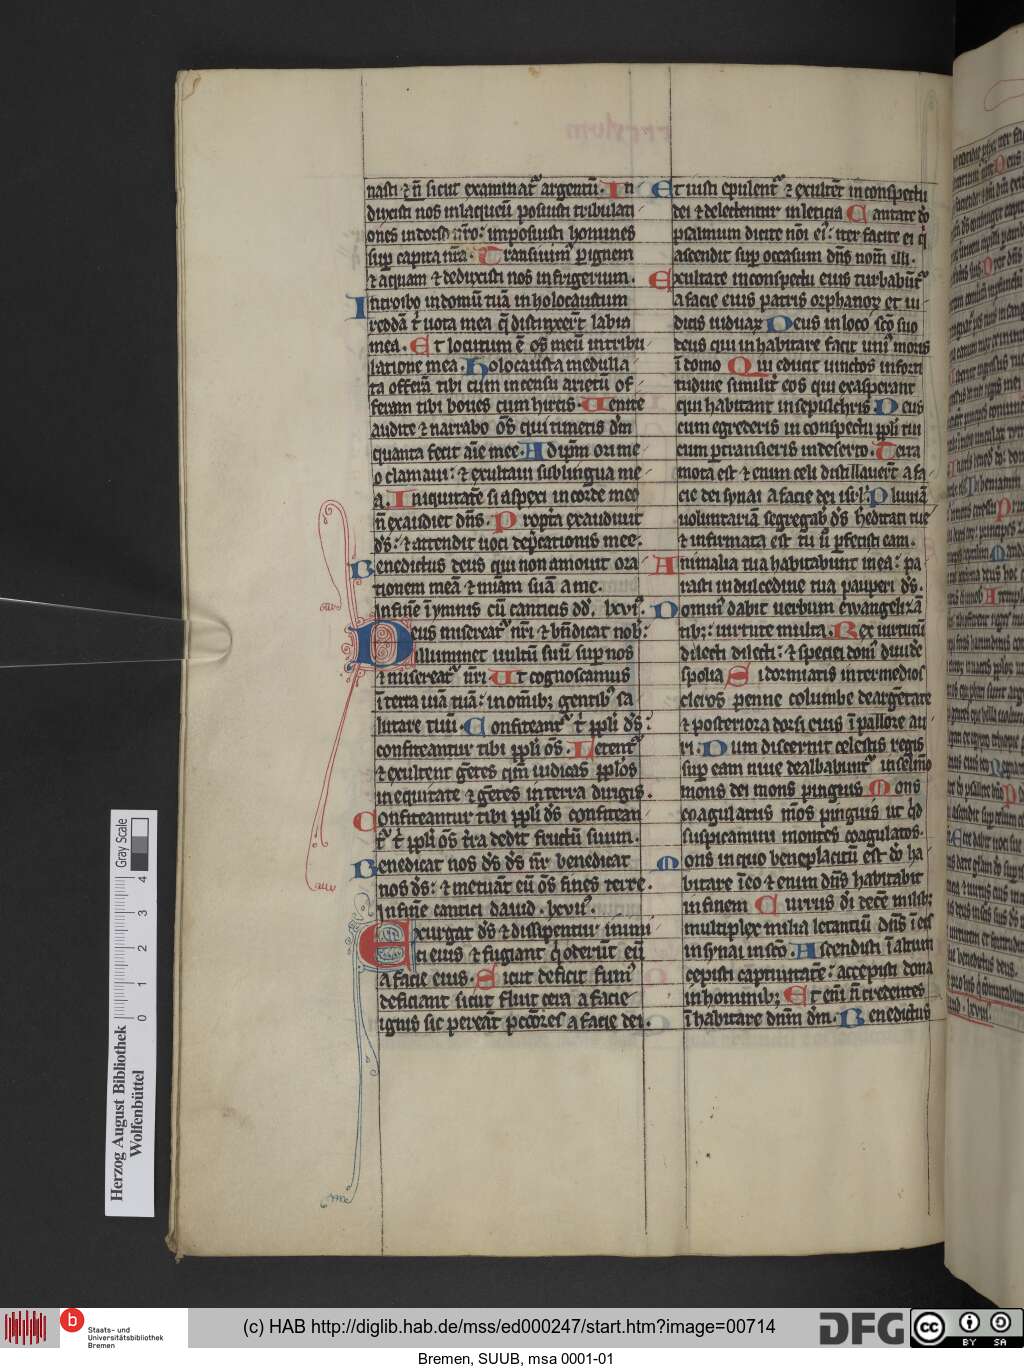 nasti ⁊ n̄ sicut examinatᷣ argentū. In
duxisti nos in laqueū posuisti tribulati
ones in dorso nr̄o: imposuisti homines
sup̄ capita nr̄a. Transiuimᷤ p ignem
⁊ aquam ⁊ deduxisti nos in frigerium.
Introibo in domū tuā in holocaustum
reddā t̄ uota mea q̄ distinxerr̄t labia
mea. Et locutum ē os meū in tribu
latione mea. Holocausta medulla
ta offerā tibi cum incensu arietū of
feram tibi boues cum hircis. Uenite
audite ⁊ narrabo ōs qui timetis dm̄
quanta fecit aīe mee. Ad ip̄m ore me
o clamaui: ⁊ exultaui sub lingua me
a. Iniquitatē si aspexi in corde meo
n̄ exaudiet dn̄s. Propt̄a exaudiuit
ds̄: ⁊ attendit uoci dep̄cationis mee.
Benedictus deus qui non amouit ora
tionem meā ⁊ miam̄ suā a me.
In finē īymnis cū canticis dd̄. lxvi.
Deus misereatᷣ nr̄i ⁊ bn̄dicat nob̄:
illuminet uultū suū sup̄ nos
⁊ misereatᷣ nr̄i Ut cognoscamus
ī terra uiā tuā: in om̄ib; gentibᷤ sa
lutare tuū. Confiteantᷣ t̄ pp̄li ds̄:
confiteantur tibi pp̄li ōs. Letentᷣ
⁊ exultent gētes qm̄ iudicas pp̄los
in equitate ⁊ gētes in terra dirigis.
Confiteantur tibi pp̄li ds̄ confitean
tᷣ t̄ pp̄li ōs t̄ra dedit fructū suum.
Benedicat nos ds̄ ds̄ nr̄ benedicat
nos ds̄: ⁊ metuāt eū ōs fines terre.
In finē cantici dauid. lxvii.
Exurgat ds̄ ⁊ dissipentur inimi
ci eius ⁊ fugiant q̄ oderūt eū
a facie eius. Sicut deficit fumᷤ
deficiant sicut fluit cera a facie
ignis sic pereāt pccōres a facie dei.
Et iusti epulentᷣ ⁊ exultēt in conspectu
dei ⁊ delectentur in leticia Cantate dō
psalmum dicite nōi eiᷤ: iter facite ei q̄
ascendit sup̄ occasum dn̄s nom̄ illi.
Exultate in conspectu eius turbabūtᷣ
a facie eius patris orphanoꝝ et iu
dicis uiduaꝝ Deus in loco scō suo
deus qui inhabitare facit uniᷤ moris
ī domo Qui educit uinctos in forti
tudine similit̄ eos qui exasperant
qui habitant in sepulchris Deus
cum egredereris in conspectu pp̄li tui
cum ptransieris in deserto. Terra
mota est ⁊ enim celi distillauerr̄t a fa
cie dei synai a facie dei isrl̄. Pluuiā
uoluntariā segregab̄ ds̄ heditati tue
⁊ infirmata est tu ū pfecisti eam.
Animalia tua habitabunt in ea: pa
rasti in dulcedine tua pauperi ds̄.
Dominᷤ dabit uerbum ewangeliz̄a
tib;: uirtute multa. Rex uirtutū
dilecti dilecti: ⁊ speciei domᷤ diuide
spolia Si dormiatis inter medios
cleros penne columbe deargētate
⁊ posteriora dorsi eius ī pallore au
ri: Dum discernit celestis reges
sup̄ eam niue dealbabuntᷣ in selmō
mons dei mons pinguis Mons
coagulatus mōs pinguis ut qd̄
suspicamini montes coagulatos.
Mons in quo beneplacitū est dō ha
bitare ī eo ⁊ enim dn̄s habitabit
in finem Currus dī decē milib;
multiplex milia letantiū dn̄s ī eis
in synai in scō. Ascendisti ī altum
cepisti captiuitatē: accepisti dona
in hominib; Et eni n̄ credentes
ī habitare dnm̄ dm̄. Benedictus
Gray Scale
Herzog August Bibliothek
Wolfenbüttel
0 1 2 3 4
b
Staats- und
Universitätsbibliothek
Bremen
(c) HAB http://diglib.hab.de/mss/ed000247/start.htm?image=00714
DFG
cc
BY SA
Bremen, SUUB, msa 0001-01